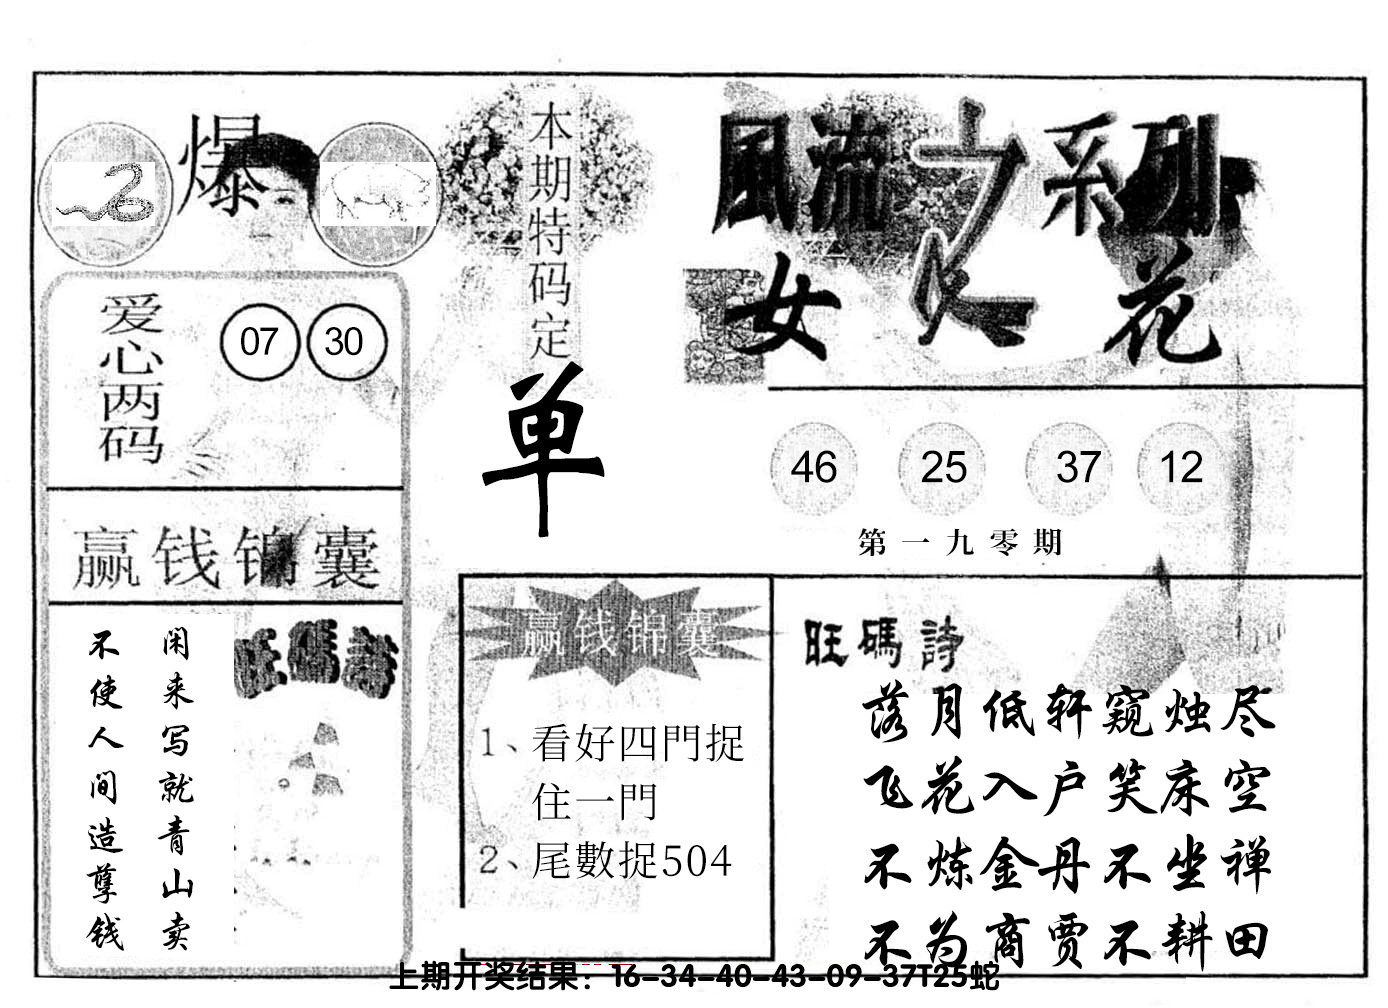 爆
本期特码定
单
風流之系列
女人花
爱心两码
07 30
46 25 37 12
第一九零期
赢钱锦囊
旺碼詩
闲来写就青山卖
不使人间造孽钱
赢钱锦囊
1、看好四門捉
住一門
2、尾數捉504
旺碼詩
落月低轩窥烛尽
飞花入户笑床空
不炼金丹不坐禅
不为商贾不耕田
上期开奖结果：16-34-40-43-09-37T25蛇